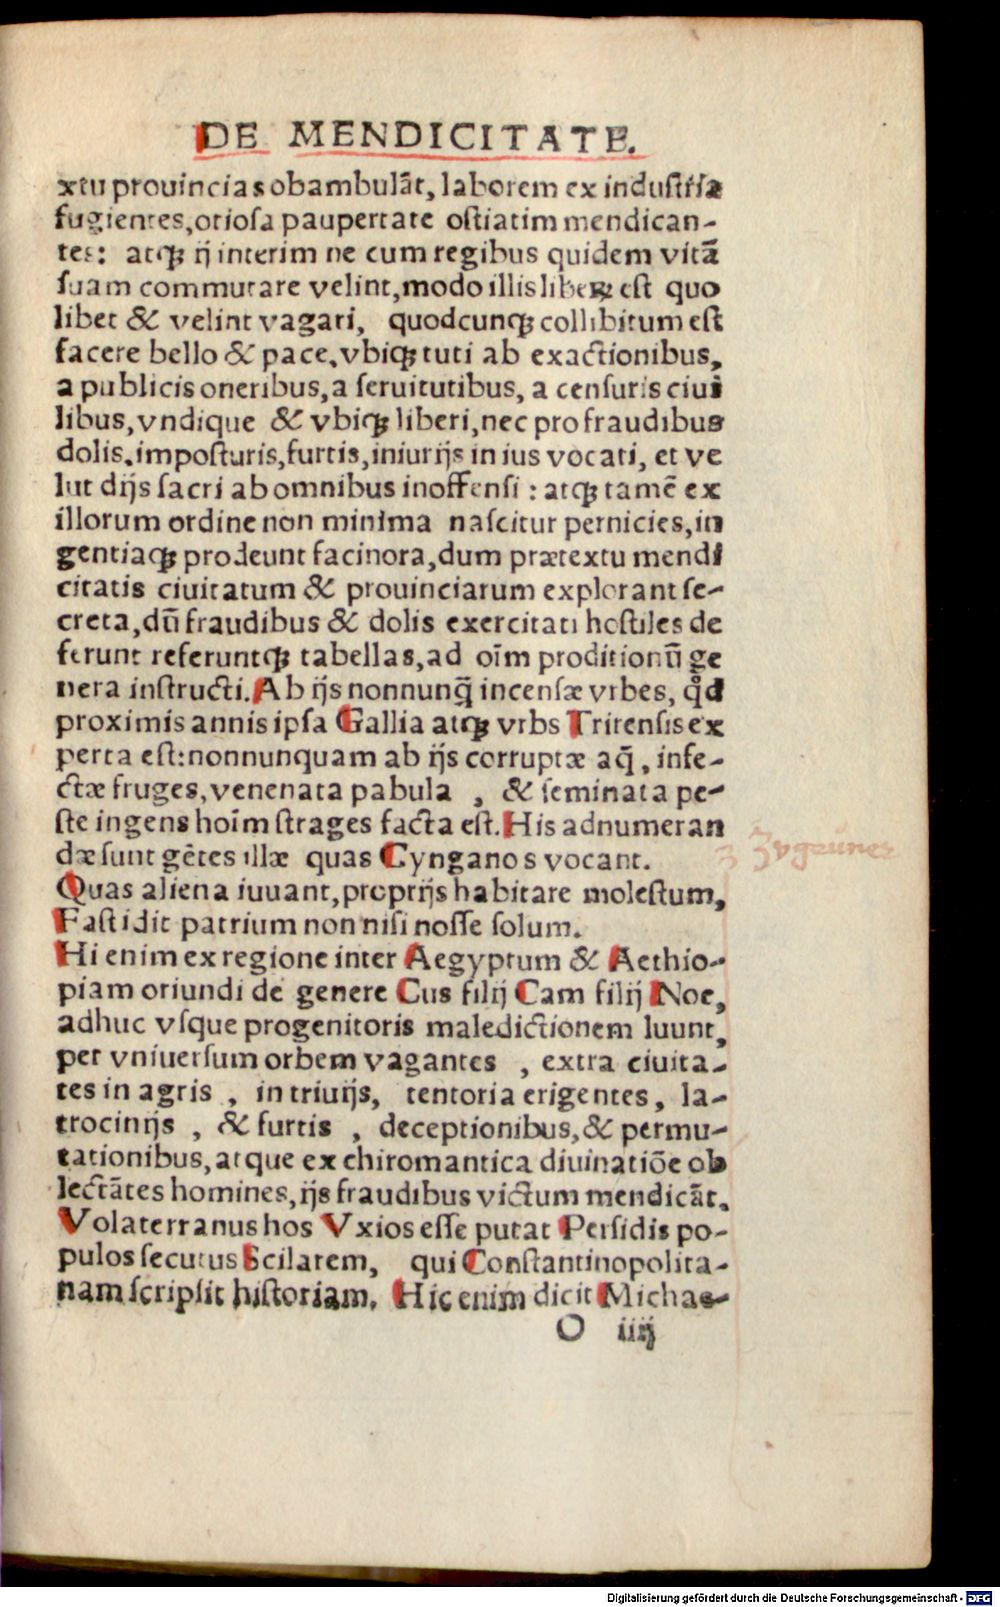 DE MENDICITATE.
xtu prouincias obambulāt, laborem ex industria
fugientes, otiosa paupertate ostiatim mendican-
tes: atq; ij interim ne cum regibus quidem vitā
suam commutare velint, modo illis liberū est quo
libet & velint vagari, quodcunq; collibitum est
facere bello & pace, vbiq; tuti ab exactionibus,
a publicis oneribus, a seruitutibus, a censuris ciui
libus, vndique & vbiq; liberi, nec pro fraudibus
dolis, imposturis, furtis, iniurijs in ius vocati, et ve
lut dijs sacri ab omnibus inoffensi: atq; tamē ex
illorum ordine non minima nascitur pernicies, in
gentiaq; prodeunt facinora, dum prætextu mendi
citatis ciuitatum & prouinciarum explorant se-
creta, dū fraudibus & dolis exercitati hostiles de
ferunt referuntq; tabellas, ad oīm proditionū ge
nera instructi. Ab ijs nonnunq̄ incensæ vrbes, qd̊
proximis annis ipsa Gallia atq; vrbs Tritensis ex
perta est: nonnunquam ab ijs corruptæ aq̄, infe-
ctæ fruges, venenata pabula, & seminata pe-
ste ingens hoīm strages facta est. His adnumeran
dæ sunt gētes illæ quas Cynganos vocant.
Zygeuner
Quas aliena iuuant, proprijs habitare molestum,
Fastidit patrium non nisi nosse solum.
Hi enim ex regione inter Aegyptum & Aethio-
piam oriundi de genere Cus filij Cam filij Noe,
adhuc vsque progenitoris maledictionem luunt,
per vniuersum orbem vagantes, extra ciuita-
tes in agris, in triuijs, tentoria erigentes, la-
trocinijs, & furtis, deceptionibus, & permu-
tationibus, atque ex chiromantica diuinatiōe ob
lectātes homines, ijs fraudibus victum mendicāt.
Volaterranus hos Vxios esse putat Persidis po-
pulos secutus Scilatem, qui Constantinopolita-
nam scripsit historiam. Hic enim dicit Michae-
O iiij
Digitalisierung gefördert durch die Deutsche Forschungsgemeinschaft - DFG